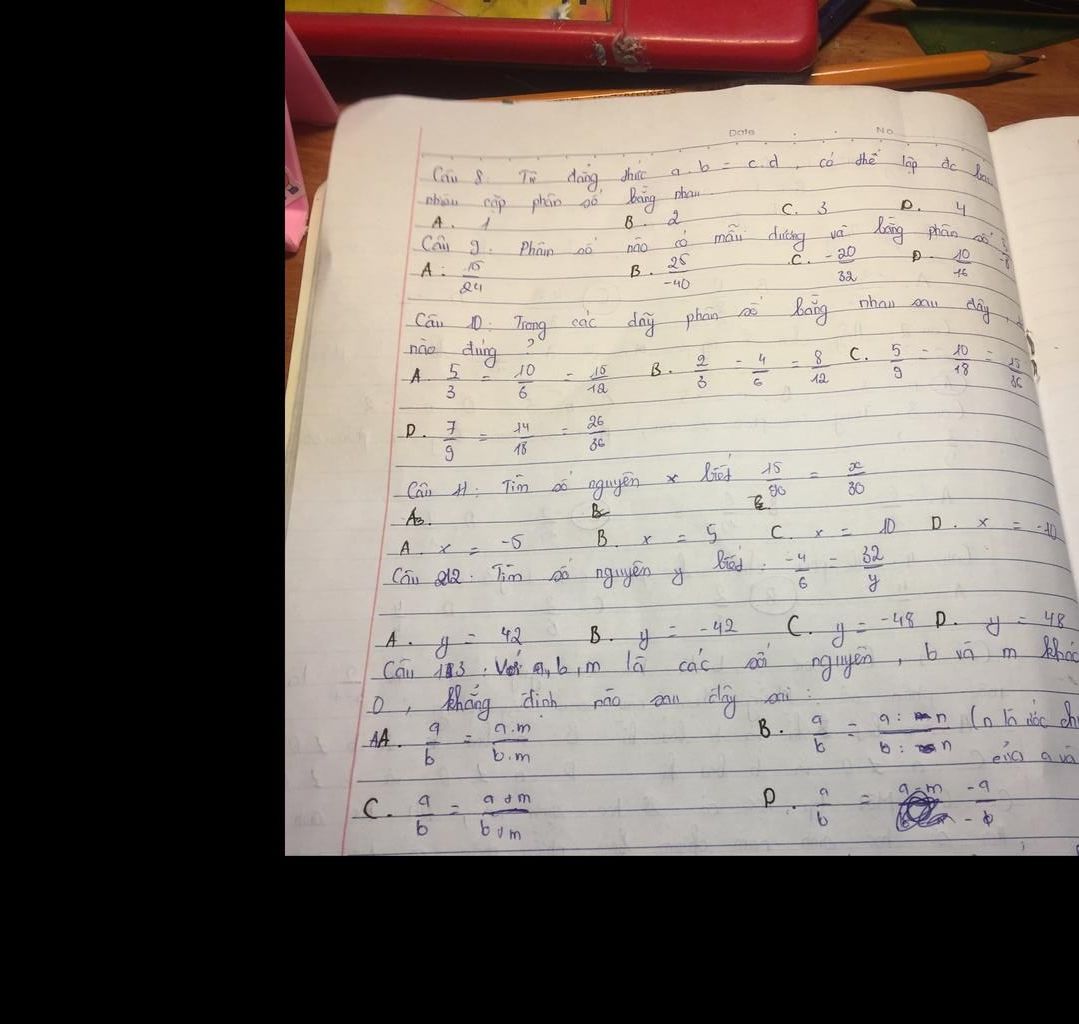 Date . . No
Câu 8. Từ đẳng thức a.b = c.d, có thể lập đc bao
nhiêu cặp phân số bằng nhau
A. 1 B. 2 C. 3 D. 4
Câu 9: Phân số nào có mẫu dương và bằng phân số
A: 15/24 B. 25/-40 C. -20/32 D. 10/16
Câu 10: Trong các dãy phân số bằng nhau sau đây,
nào đúng ?
A. 5/3 = 10/6 = 15/12 B. 2/3 = 4/6 = 8/12 C. 5/9 = 10/18 = 15/36
D. 7/9 = 14/18 = 26/36
Câu 11: Tìm số nguyên x biết 15/90 = x/30
A. x = -5 B. x = 5 C. x = 10 D. x = -10
Câu 12. Tìm số nguyên y biết : -4/6 = 32/y
A. y = 42 B. y = -42 C. y = -48 D. y = 48
Câu 13. Với a, b, m là các số nguyên, b và m khác
0, khẳng định nào sau đây sai :
A. a/b = a.m/b.m B. a/b = a: n/b: n (n là ước
của a và
C. a/b = a+m/b+m D. a/b = -a/-b